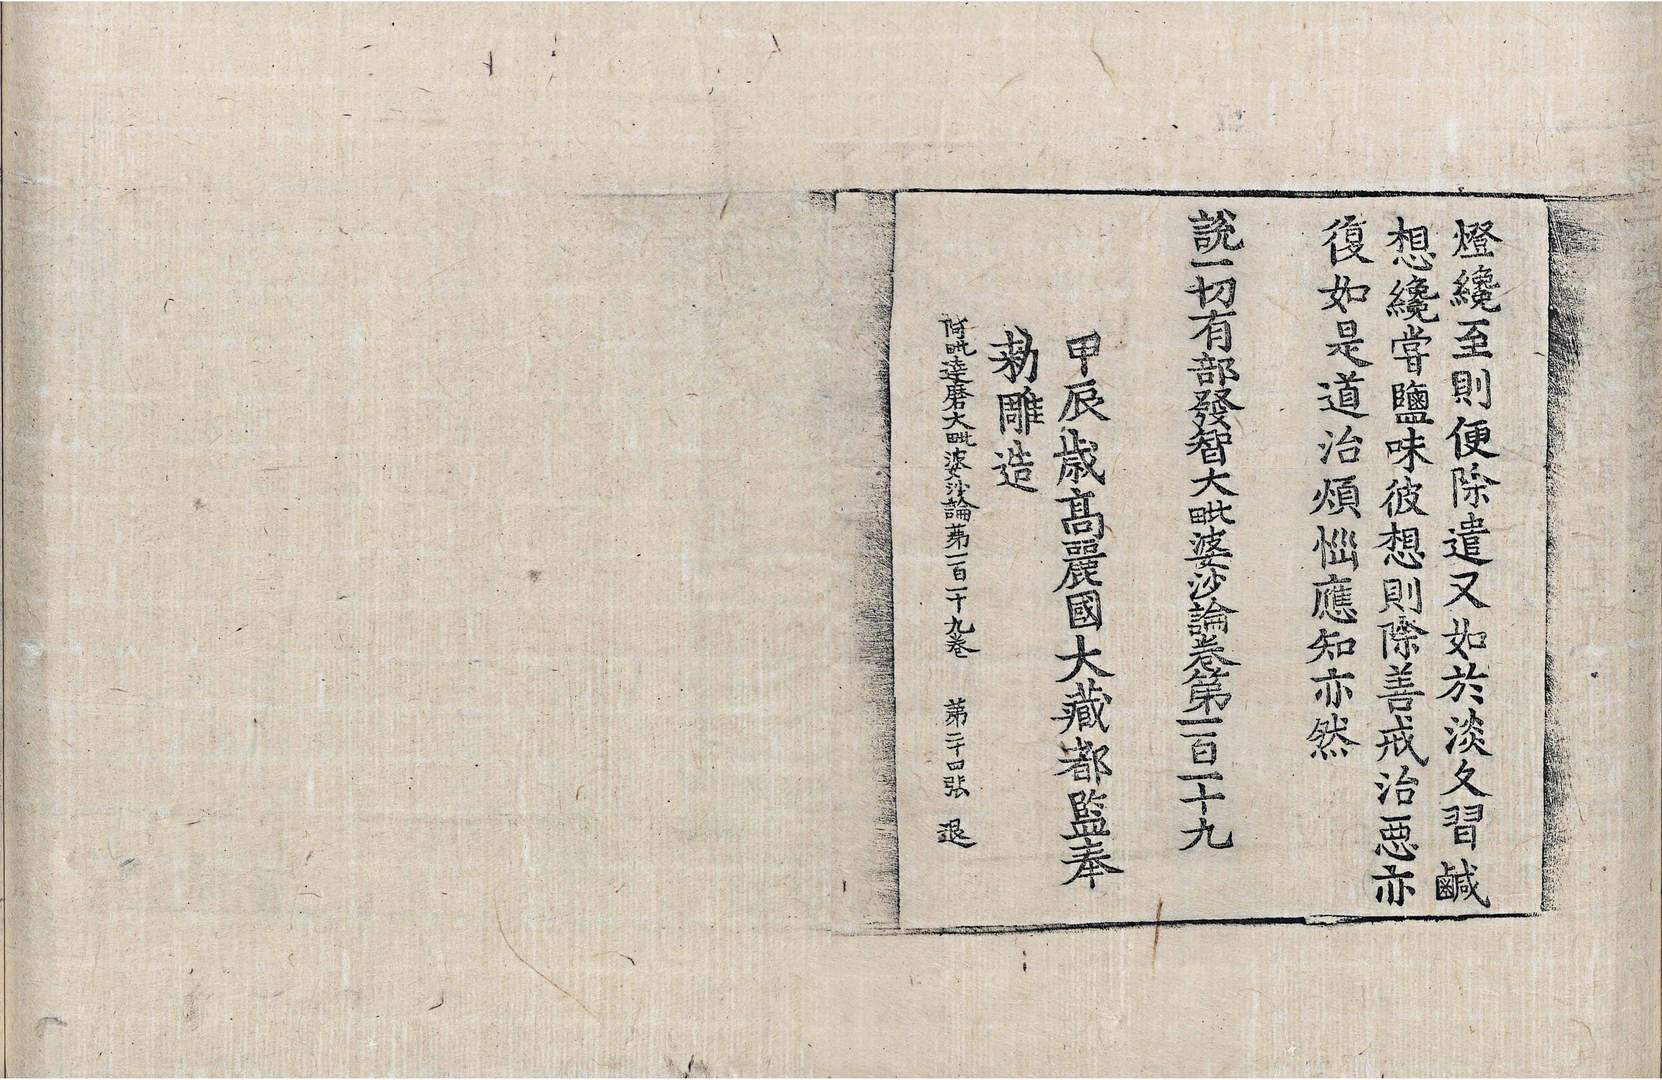 燈纔至則便除遣又如於淡久習鹹
想纔嘗鹽味彼想則除善戒治惡亦
復如是道治煩惱應知亦然
說一切有部發智大毗婆沙論卷第一百一十九
甲辰歲高麗國大藏都監奉
勑雕造
阿毗達磨大毗婆沙論第一百一十九卷 第二十四張 退